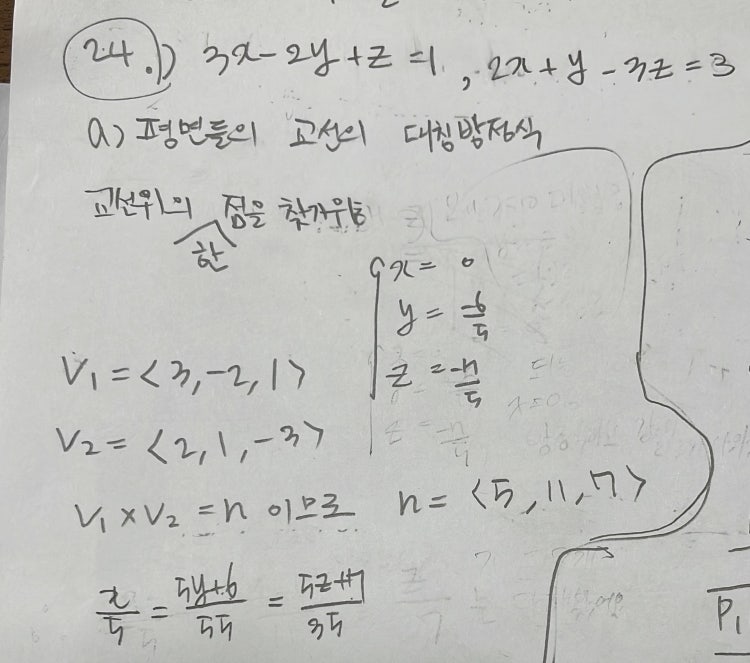 24.1) 3x-2y+z=1, 2x+y-3z=3
a) 평면들의 교선의 대칭방정식
교선위의 한 점을 찾기위해
x=0
y=-6/5
z=-7/5
V₁=<3,-2,1>
V₂=<2,1,-3>
V₁×V₂=n 이므로 n=<5,11,7>
x/5 = 5y+6/55 = 5z+7/35
P₁